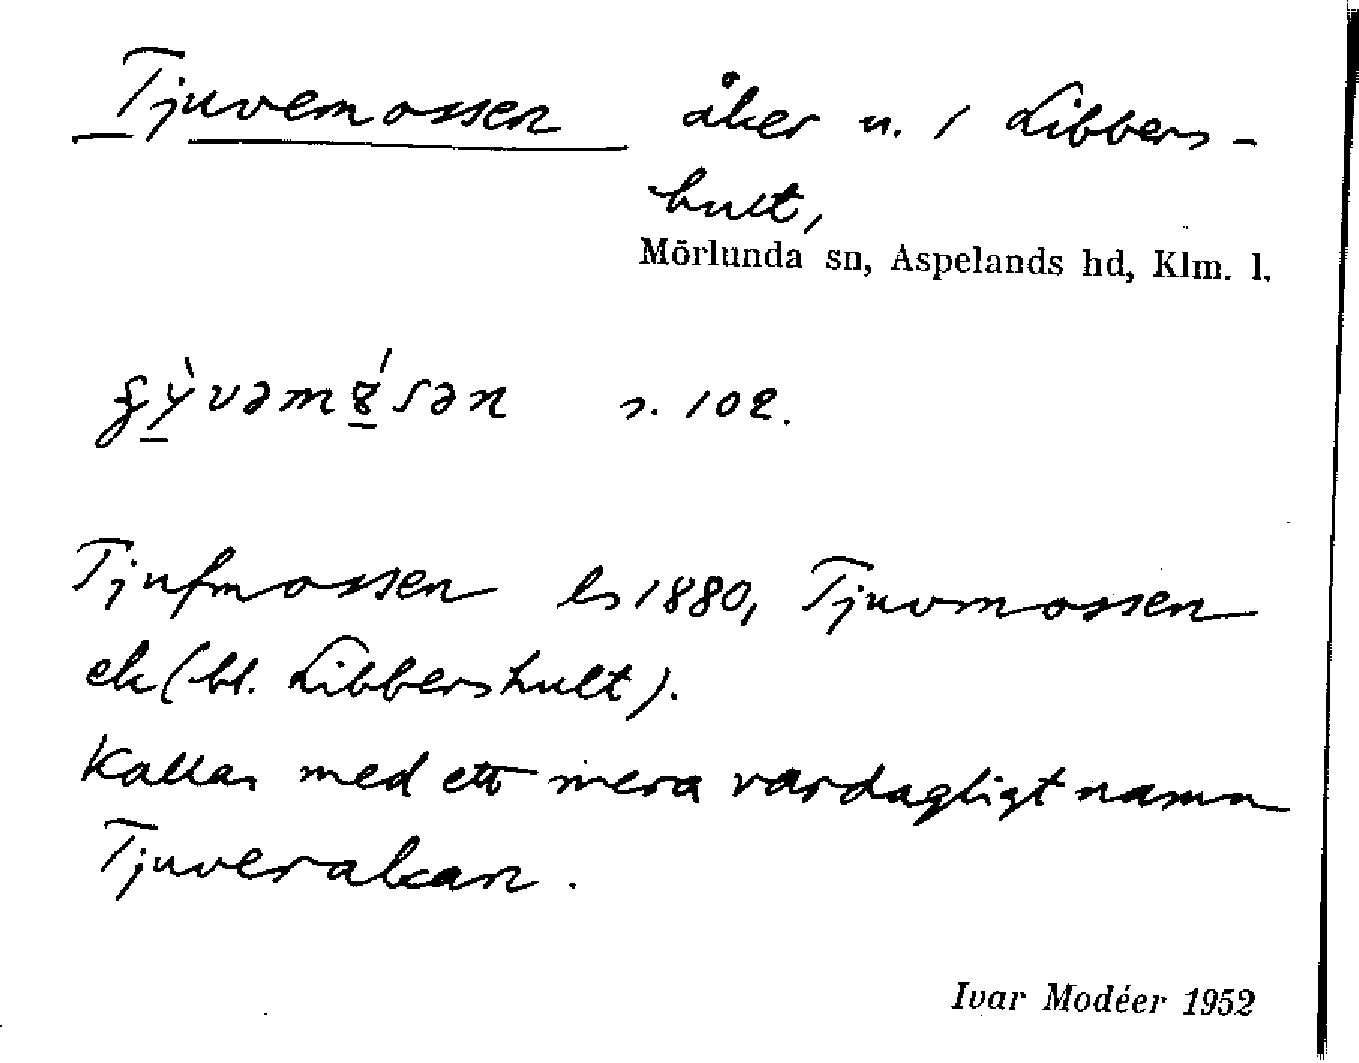 Tjuvemossen åker n. 1 Libbers-
hult,
Mörlunda sn, Aspelands hd, Klm. l.
s. 102.
Tjufmossen ls 1880, Tjuvmossen
ek (bl. Libbershult).
Kallas med ett mera vardagligt namn
Tjuverakan.
Ivar Modéer 1952